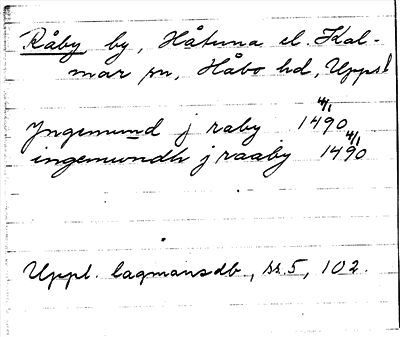 Råby by, Håtuna el. Kal-
mar sn, Håbo hd, Uppl
Yngemund j raby 1490 4/1
ingemundh j raaby 1490 4/1
Uppl. lagmansdb., sr. 5, 102.